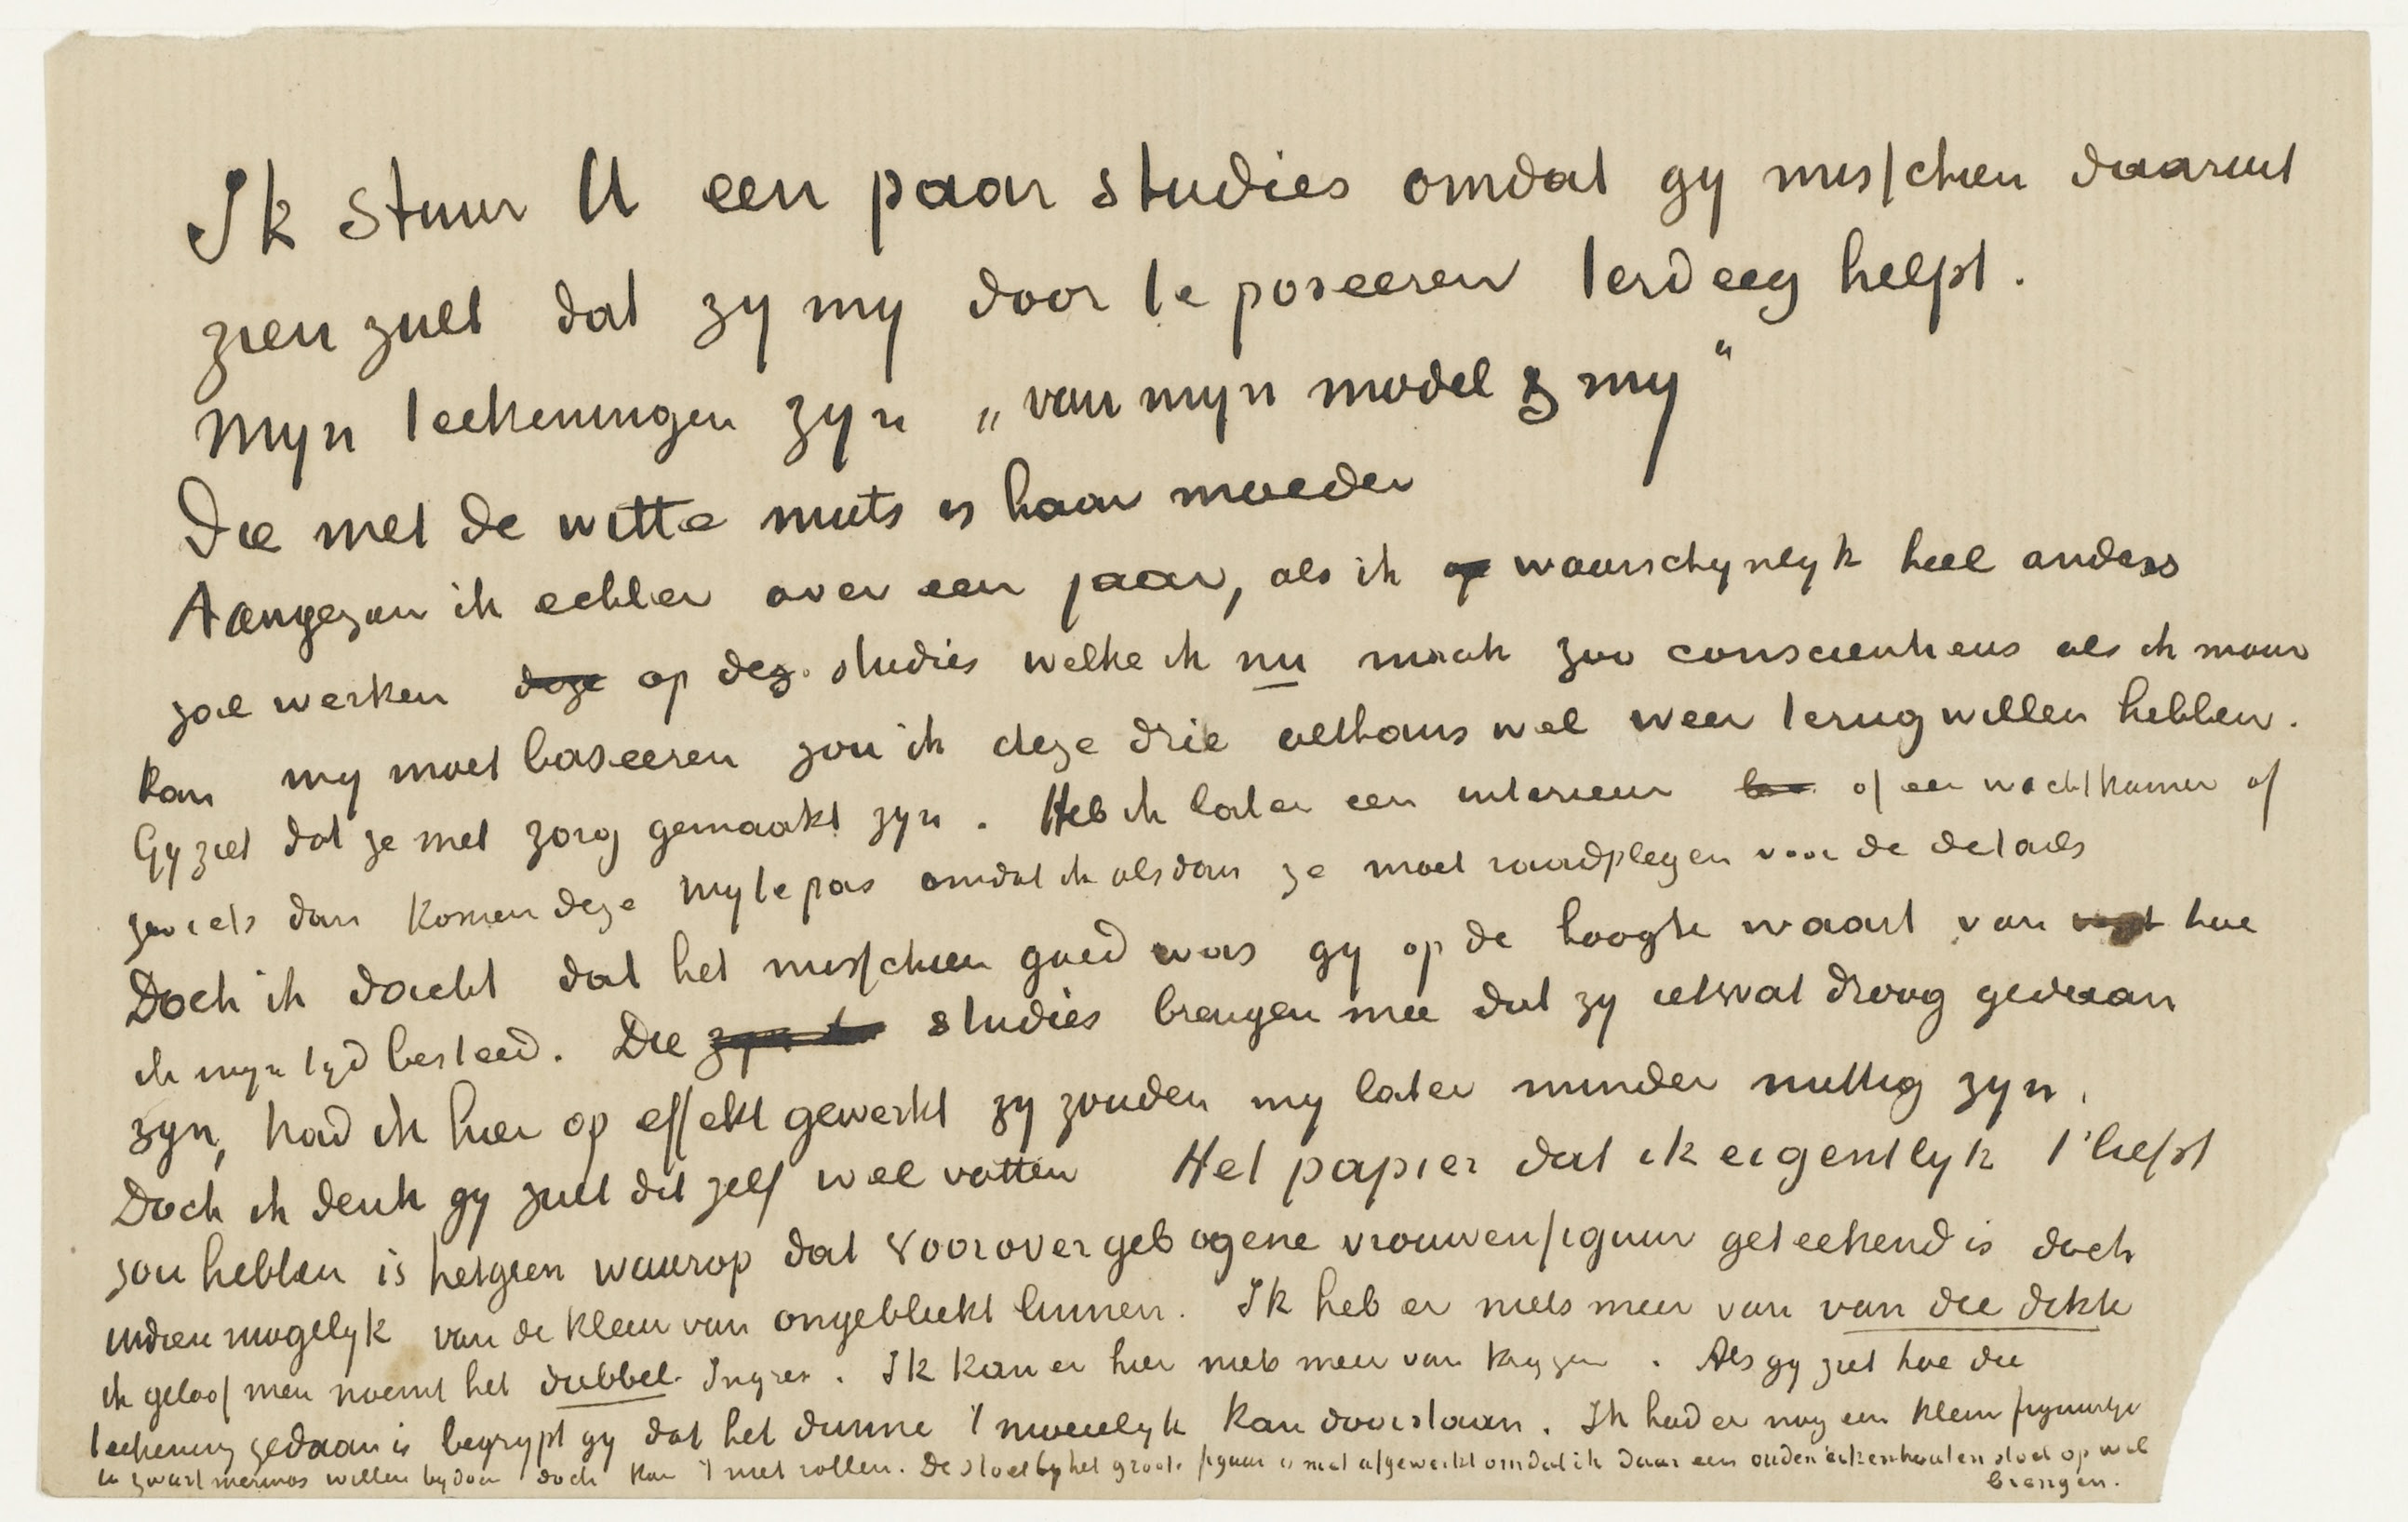 Ik stuur U een paar studies omdat gy misschien daaruit
zien zult dat zy my door te poseeren terdeeg helpt.
Myn teekeningen zyn „van myn model & my“
Die met de witte muts is haar moeder
Aangezien ik echter over een jaar, als ik op waarschynlyk heel anders
zal werken deze op dez. studies welke ik nu maak zoo consciencieus als ik maar
kan my moet baseeren zou ik deze drie althans wel weer terug willen hebben.
Gy ziet dat ze met zorg gemaakt zyn. Heb ik later een interieur of een wachtkamer of
zoo iets dan komen deze my te pas omdat ik alsdan ze moet raadplegen voor de details
Doch ik dacht dat het misschien goed was gy op de hoogte waart van hoe
ik myn tyd besteed. Die studies brengen mee dat zy ietwat droog gedaan
zyn, had ik hier op effekt gewerkt zy zouden my later minder nuttig zyn.
Doch ik denk gy zult dit zelf wel vatten Het papier dat ik eigentlyk 't liefst
zou hebben is hetgeen waarop dat voorovergebogene vrouwenfiguur geteekend is doch
indien mogelyk van de kleur van ongebleekt linnen. Ik heb er niets meer van van die dikte
ik geloof men noemt het dubbel Ingres. Ik kan er hier niets meer van krygen. Als gy ziet hoe die
teekening gedaan is begrypt gy dat het dunne 't moeielyk kan doorstaan. Ik had er nog een klein figuurtje
in zwart merinos willen by doen doch kan 't niet rollen. De stoel by het groote figuur is niet afgewerkt omdat ik daar een ouden eikenhouten stoel op wil
brengen.